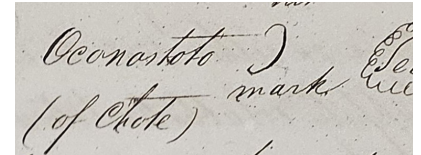 Oconostoto )
mark
(of Chote)